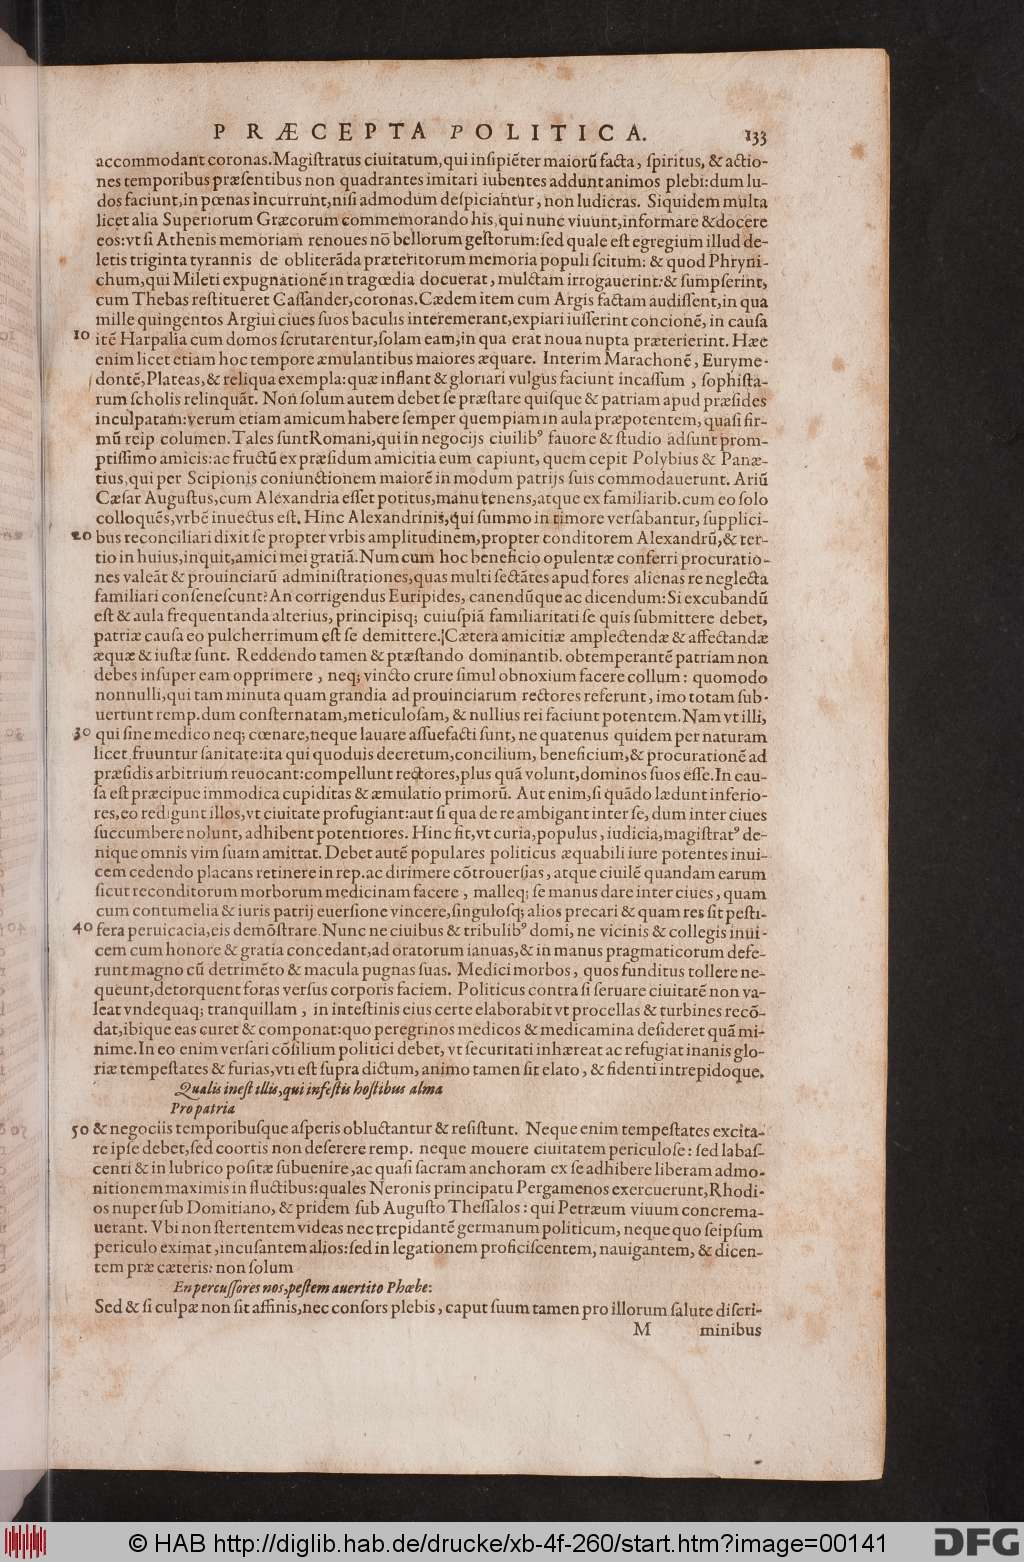 PRÆCEPTA POLITICA. 133
accommodant coronas. Magiſtratus ciuitatum, qui inſipiẽter maiorũ facta, ſpiritus, & actio-
nes temporibus præſentibus non quadrantes imitari iubentes addunt animos plebi: dum lu-
dos faciunt, in pœnas incurrunt, niſi admodum deſpiciantur, non ludicras. Siquidem multa
licet alia Superiorum Græcorum commemorando his, qui nunc viuunt, informare & docere
eos: vt ſi Athenis memoriam renoues nõ bellorum geſtorum: ſed quale eſt egregium illud de-
letis triginta tyrannis de obliterãda præteritorum memoria populi ſcitum: & quod Phryni-
chum, qui Mileti expugnationẽ in tragœdia docuerat, mulctam irrogauerint: & ſumpſerint,
cum Thebas reſtitueret Caſſander, coronas. Cædem item cum Argis factam audiſſent, in qua
mille quingentos Argiui ciues ſuos baculis interemerant, expiari iuſſerint concionẽ, in cauſa
10 itẽ Harpalia cum domos ſcrutarentur, ſolam eam, in qua erat noua nupta præterierint. Hæc
enim licet etiam hoc tempore æmulantibus maiores æquare. Interim Marachonẽ, Euryme-
dontẽ, Plateas, & reliqua exempla: quæ inflant & gloriari vulgus faciunt incaſſum, ſophiſta-
rum ſcholis relinquãt. Non ſolum autem debet ſe præſtare quiſque & patriam apud præſides
inculpatam: verum etiam amicum habere ſemper quempiam in aula præpotentem, quaſi fir-
mũ reip columen. Tales ſunt Romani, qui in negocijs ciuilibꝰ fauore & ſtudio adſunt prom-
ptiſſimo amicis: ac fructũ ex præſidum amicitia eum capiunt, quem cepit Polybius & Panæ-
tius, qui per Scipionis coniunctionem maiorẽ in modum patrijs ſuis commodauerunt. Ariũ
Cæſar Auguſtus, cum Alexandria eſſet potitus, manu tenens, atque ex familiarib. cum eo ſolo
colloquẽs, vrbẽ inuectus eſt. Hinc Alexandrinis, qui ſummo in timore verſabantur, ſupplici-
20 bus reconciliari dixit ſe propter vrbis amplitudinem, propter conditorem Alexandrũ, & ter-
tio in huius, inquit, amici mei gratiã. Num cum hoc beneficio opulentæ conferri procuratio-
nes valeãt & prouinciarũ adminiſtrationes, quas multi ſectãtes apud fores alienas re neglecta
familiari conſeneſcunt? An corrigendus Euripides, canendũque ac dicendum: Si excubandũ
eſt & aula frequentanda alterius, principisq; cuiuſpiã familiaritati ſe quis ſubmittere debet,
patriæ cauſa eo pulcherrimum eſt ſe demittere. Cætera amicitiæ amplectendæ & affectandæ
æquæ & iuſtæ ſunt. Reddendo tamen & præſtando dominantib. obtemperantẽ patriam non
debes inſuper eam opprimere, neq; vincto crure ſimul obnoxium facere collum: quomodo
nonnulli, qui tam minuta quam grandia ad prouinciarum rectores referunt, imo totam ſub-
uertunt remp. dum conſternatam, meticuloſam, & nullius rei faciunt potentem. Nam vt illi,
30 qui ſine medico neq; cœnare, neque lauare aſſuefacti ſunt, ne quatenus quidem per naturam
licet fruuntur ſanitate: ita qui quoduis decretum, concilium, beneficium, & procurationẽ ad
præſidis arbitrium reuocant: compellunt rectores, plus quã volunt, dominos ſuos eſſe. In cau-
ſa eſt præcipue immodica cupiditas & æmulatio primorũ. Aut enim, ſi quãdo lædunt inferio-
res, eo redigunt illos, vt ciuitate profugiant: aut ſi qua de re ambigant inter ſe, dum inter ciues
ſuccumbere nolunt, adhibent potentiores. Hinc fit, vt curia, populus, iudicia, magiſtratꝰ de-
nique omnis vim ſuam amittat. Debet autẽ populares politicus æquabili iure potentes inui-
cem cedendo placans retinere in rep. ac dirimere cõtrouerſias, atque ciuilẽ quandam earum
ſicut reconditorum morborum medicinam facere, malleq; ſe manus dare inter ciues, quam
cum contumelia & iuris patrij euerſione vincere, ſingulosq; alios precari & quam res ſit peſti-
40 fera peruicacia, eis demõſtrare. Nunc ne ciuibus & tribulibꝰ domi, ne vicinis & collegis inui-
cem cum honore & gratia concedant, ad oratorum ianuas, & in manus pragmaticorum defe-
runt magno cũ detrimẽto & macula pugnas ſuas. Medici morbos, quos funditus tollere ne-
queunt, detorquent foras verſus corporis faciem. Politicus contra ſi ſeruare ciuitatẽ non va-
leat vndequaq; tranquillam, in inteſtinis eius certe elaborabit vt procellas & turbines recõ-
dat, ibique eas curet & componat: quo peregrinos medicos & medicamina deſideret quã mi-
nime. In eo enim verſari cõſilium politici debet, vt ſecuritati inhæreat ac refugiat inanis glo-
riæ tempeſtates & furias, vti eſt ſupra dictum, animo tamen ſit elato, & fidenti intrepidoque,
Qualis ineſt illis, qui infeſtis hoſtibus alma
Pro patria
50 & negociis temporibuſque aſperis obluctantur & reſiſtunt. Neque enim tempeſtates excita-
re ipſe debet, ſed coortis non deſerere remp. neque mouere ciuitatem periculoſe: ſed labaſ-
centi & in lubrico poſitæ ſubuenire, ac quaſi ſacram anchoram ex ſe adhibere liberam admo-
nitionem maximis in fluctibus: quales Neronis principatu Pergamenos exercuerunt, Rhodi-
os nuper ſub Domitiano, & pridem ſub Auguſto Theſſalos: qui Petræum viuum concrema-
uerant. Vbi non ſtertentem videas nec trepidantẽ germanum politicum, neque quo ſeipſum
periculo eximat, incuſantem alios: ſed in legationem proficiſcentem, nauigantem, & dicen-
tem præ cæteris: non ſolum
En percuſſores nos, peſtem auertito Phœbe:
Sed & ſi culpæ non ſit affinis, nec conſors plebis, caput ſuum tamen pro illorum ſalute diſcri-
M minibus
© HAB http://diglib.hab.de/drucke/xb-4f-260/start.htm?image=00141
DFG